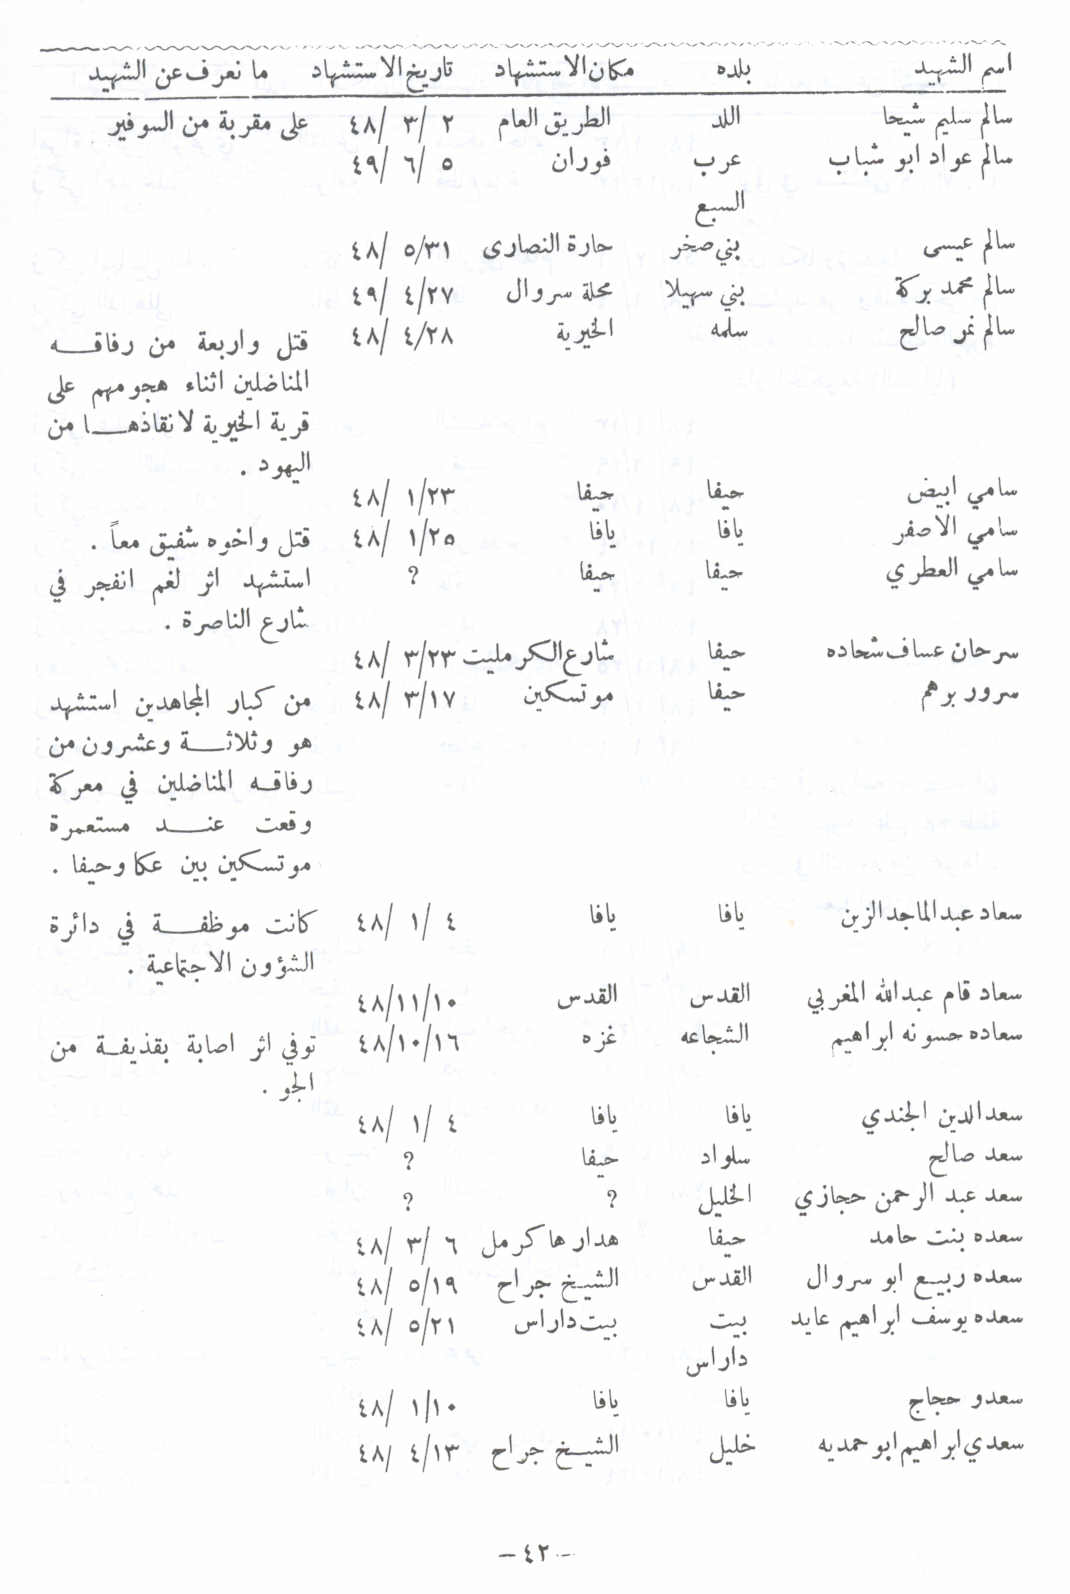 اسم الشهيد بلده مكان الاستشهاد تاريخ الاستشهاد ما نعرف عن الشهيد
سالم سليم شيحا اللد الطريق العام ٢ /٣ /٤٨ على مقربة من السوفير
سالم عواد ابو شباب عرب فوران ٥ /٦ /٤٩
السبع
سالم عيسى بني صخر حارة النصارى ٣١/٥ /٤٨
سالم محمد بركة بني سهيلا محلة سروال ٢٧/٤ /٤٩
سالم نمر صالح سلمه الخيرية ٢٨/٤ /٤٨ قتل واربعة من رفاقه
المناضلين اثناء هجومهم على
قرية الخيرية لانقاذها من
اليهود .
سامي ابيض حيفا حيفا ٢٣/١ /٤٨
سامي الاصفر يافا يافا ٢٥/١ /٤٨ قتل واخوه شفيق معاً .
سامي العطري حيفا حيفا ? استشهد اثر لغم انفجر في
شارع الناصرة .
سرحان عساف شحاده حيفا شارع الكرمليت ٢٣/٣ /٤٨
سرور برهم حيفا موتسكين ١٧/٣ /٤٨ من كبار المجاهدين استشهد
هو وثلاثة وعشرون من
رفاقه المناضلين في معركة
وقعت عند مستعمرة
موتسكين بين عكا وحيفا .
سعاد عبدالماجد الزين يافا يافا ٤ /١ /٤٨ كانت موظفة في دائرة
الشؤون الاجتماعية .
سعاد قام عبدالله المغربي القدس القدس ١٠/١١/٤٨
سعاده حسونه ابراهيم الشجاعه غزه ١٦/١٠/٤٨ توفي اثر اصابة بقذيفة من
الجو .
سعدالدين الجندي يافا يافا ٤ /١ /٤٨
سعد صالح سلواد حيفا ?
سعد عبد الرحمن حجازي الخليل ? ?
سعده بنت حامد حيفا هدار هاكرمل ٦ /٣ /٤٨
سعده ربيع ابو سروال القدس الشيخ جراح ١٩/٥ /٤٨
سعده يوسف ابراهيم عايد بيت بيت داراس ٢١/٥ /٤٨
داراس
سعدو حجاج يافا يافا ١٠/١ /٤٨
سعدي ابراهيم ابو حمديه خليل الشيخ جراح ١٣/٤ /٤٨
– ٤٢ –